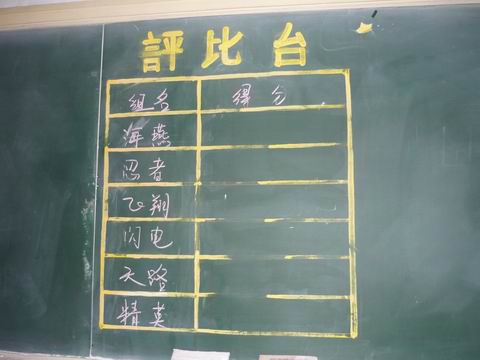 評比台
组名 得分
海燕
忍者
飞翔
闪电
天路
精英